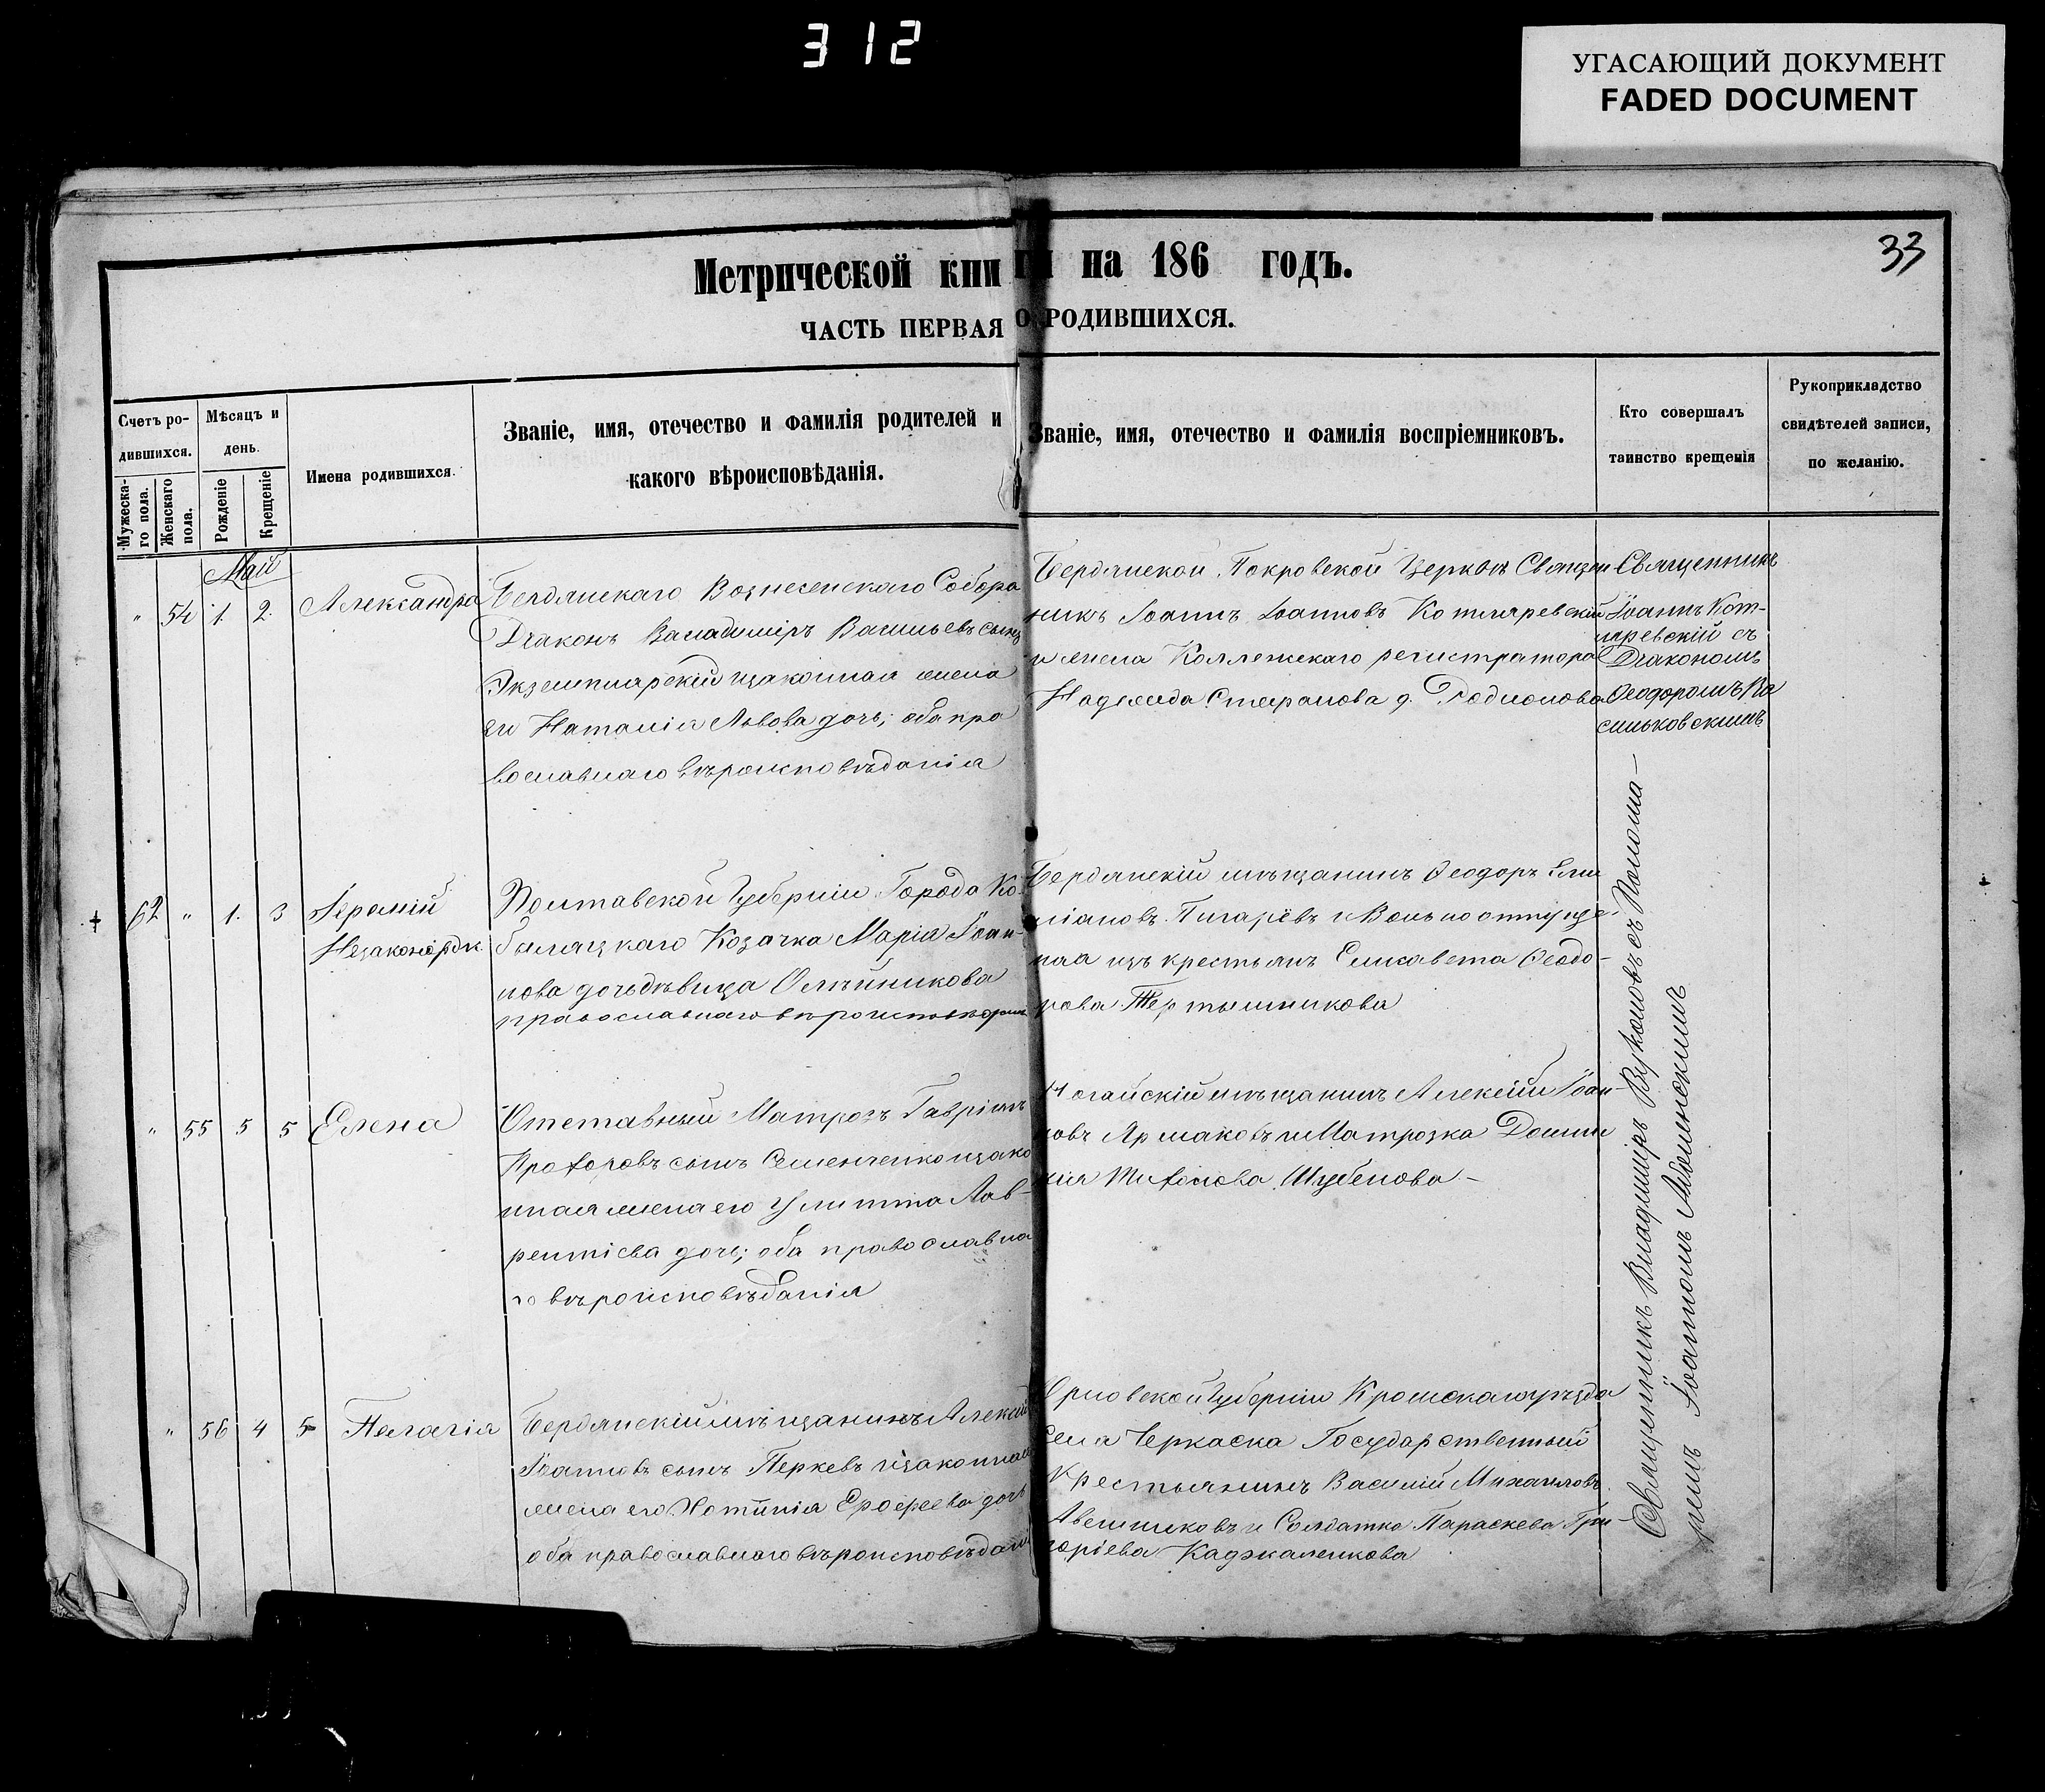 312
УГАСАЮЩИЙ ДОКУМЕНТ
FADED DOCUMENT
33
Метрической книги на 186 годъ.
ЧАСТЬ ПЕРВАЯ О РОДИВШИХСЯ.
Счетъ ро-
дившихся.
Мужеска-
го пола.
Женскаго
пола.
Мѣсяцъ и
день.
Рожденіе
Крещеніе
Имена родившихся.
Званіе, имя, отечество и фамилія родителей и
какого вѣроисповѣданія.
Званіе, имя, отечество и фамилія воспріемниковъ.
Кто совершалъ
таинство крещенія
Рукоприкладство
свидѣтелей записи,
по желанію.
Май
" 54 1. 2. Александра
Бердянскаго Вознесенскаго Собора
Діаконъ Владиміръ Васильевъ сынъ
Экземплярскій и законная жена
его Наталія Львова дочь; оба пра
вославнаго вѣроисповѣданія
Бердянской Покровской Церкви Священ
никъ Іоаннъ Іоанновъ Котляревскій
и жена Коллежскаго регистратора
Надежда Стефанова д. Родионова
Священникъ
Іоаннъ Кот-
ляревскій съ
Діакономъ
Ѳеодоромъ Ва
сильковскимъ
62 " 1. 3 Іеремій
Незаконорож.
Полтавской Губерніи Города Ко-
быляцкаго Козачка Марія Іоан-
нова дочь дѣвица Олѣйникова
православнаго
Бердянскій мѣщанинъ Ѳеодоръ Еми
ліановъ Пигарёвъ и Вольноотпуще-
ная изъ крестьянъ Елисавета Ѳеодо-
рова Тертышникова
" 55 5 5 Елена
Отставный Матрозъ Гавріилъ
Прохоровъ сынъ Семенченко и зако
нная жена его Улитта Лав-
рентіева дочь; оба православна
го вѣроисповѣданія
Ногайскій мѣщанинъ Алексій Іоан-
новъ Ярмаковъ и Матрозка Домни
кія Тихонова Шубенова -
" 56 4 5 Пелагія
Бердянскій мѣщанинъ Алексій
Іоанновъ сынъ Перкевъ и законная
жена его Хотинія Ерофеева дочь
оба православнаго вѣроисповѣдан
Орловской Губерніи Кромскаго уѣзда
Села Черкаска Государственный
Крестьянинъ Василій Михаиловъ
и Солдатка Параскева Гри-
горіева Каджаленкова
Священникъ Владиміръ Вуколовъ съ Понома-
ремъ Іоанномъ